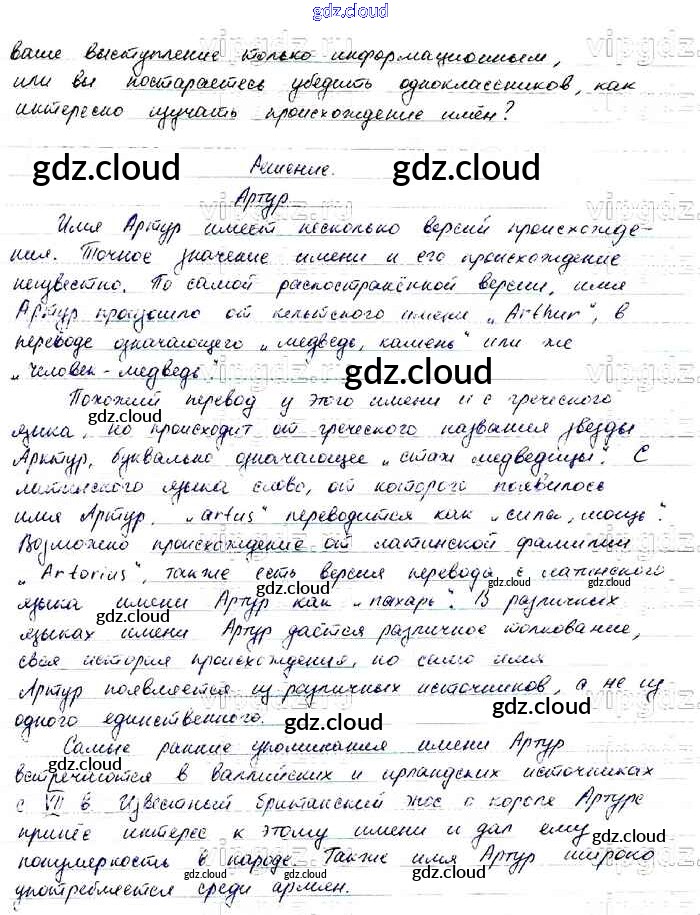 gdz.cloud
ваше выступление только информационным,
или вы постараетесь убедить одноклассников, как
интересно изучать происхождение имён?
gdz.cloud
Решение.
gdz.cloud
Артур
Имя Артур имеет несколько версий происхожде-
ния. Точное значение имени и его происхождение
неизвестно. По самой распостранённой версии, имя
Артур произошло от кельтского имени „Arthur", в
переводе означающего „медведь, камень" или же
„человек-медведь".
gdz.cloud
Похожий перевод у этого имени и с греческого
gdz.cloud
языка, но происходит от греческого названия звезды
Арктур, буквально означающее „страж медведицы". С
латинского языка слово, от которого появилось
имя Артур, „artus" переводится как „сила, мощь".
Возможно происхождение от латинской фамилии
„Artorius", также есть версия перевода с латинского
gdz.cloud gdz.cloud
языка имени Артур как „пахарь". В различных
gdz.cloud
языках имени Артур даётся различное толкование,
своя история происхождения, но само имя
Артур появляется из различных источников, а не из
одного единственного.
gdz.cloud gdz.cloud
Самые ранние упоминания имени Артур
встречаются в валлийских и ирландских источниках
с VII в Известный британский эпос о короле Артуре
принёс интерес к этому имени и дал ему
gdz.cloud
популярность в народе. Также имя Артур широко
употребляется среди армян.
gdz.cloud gdz.cloud